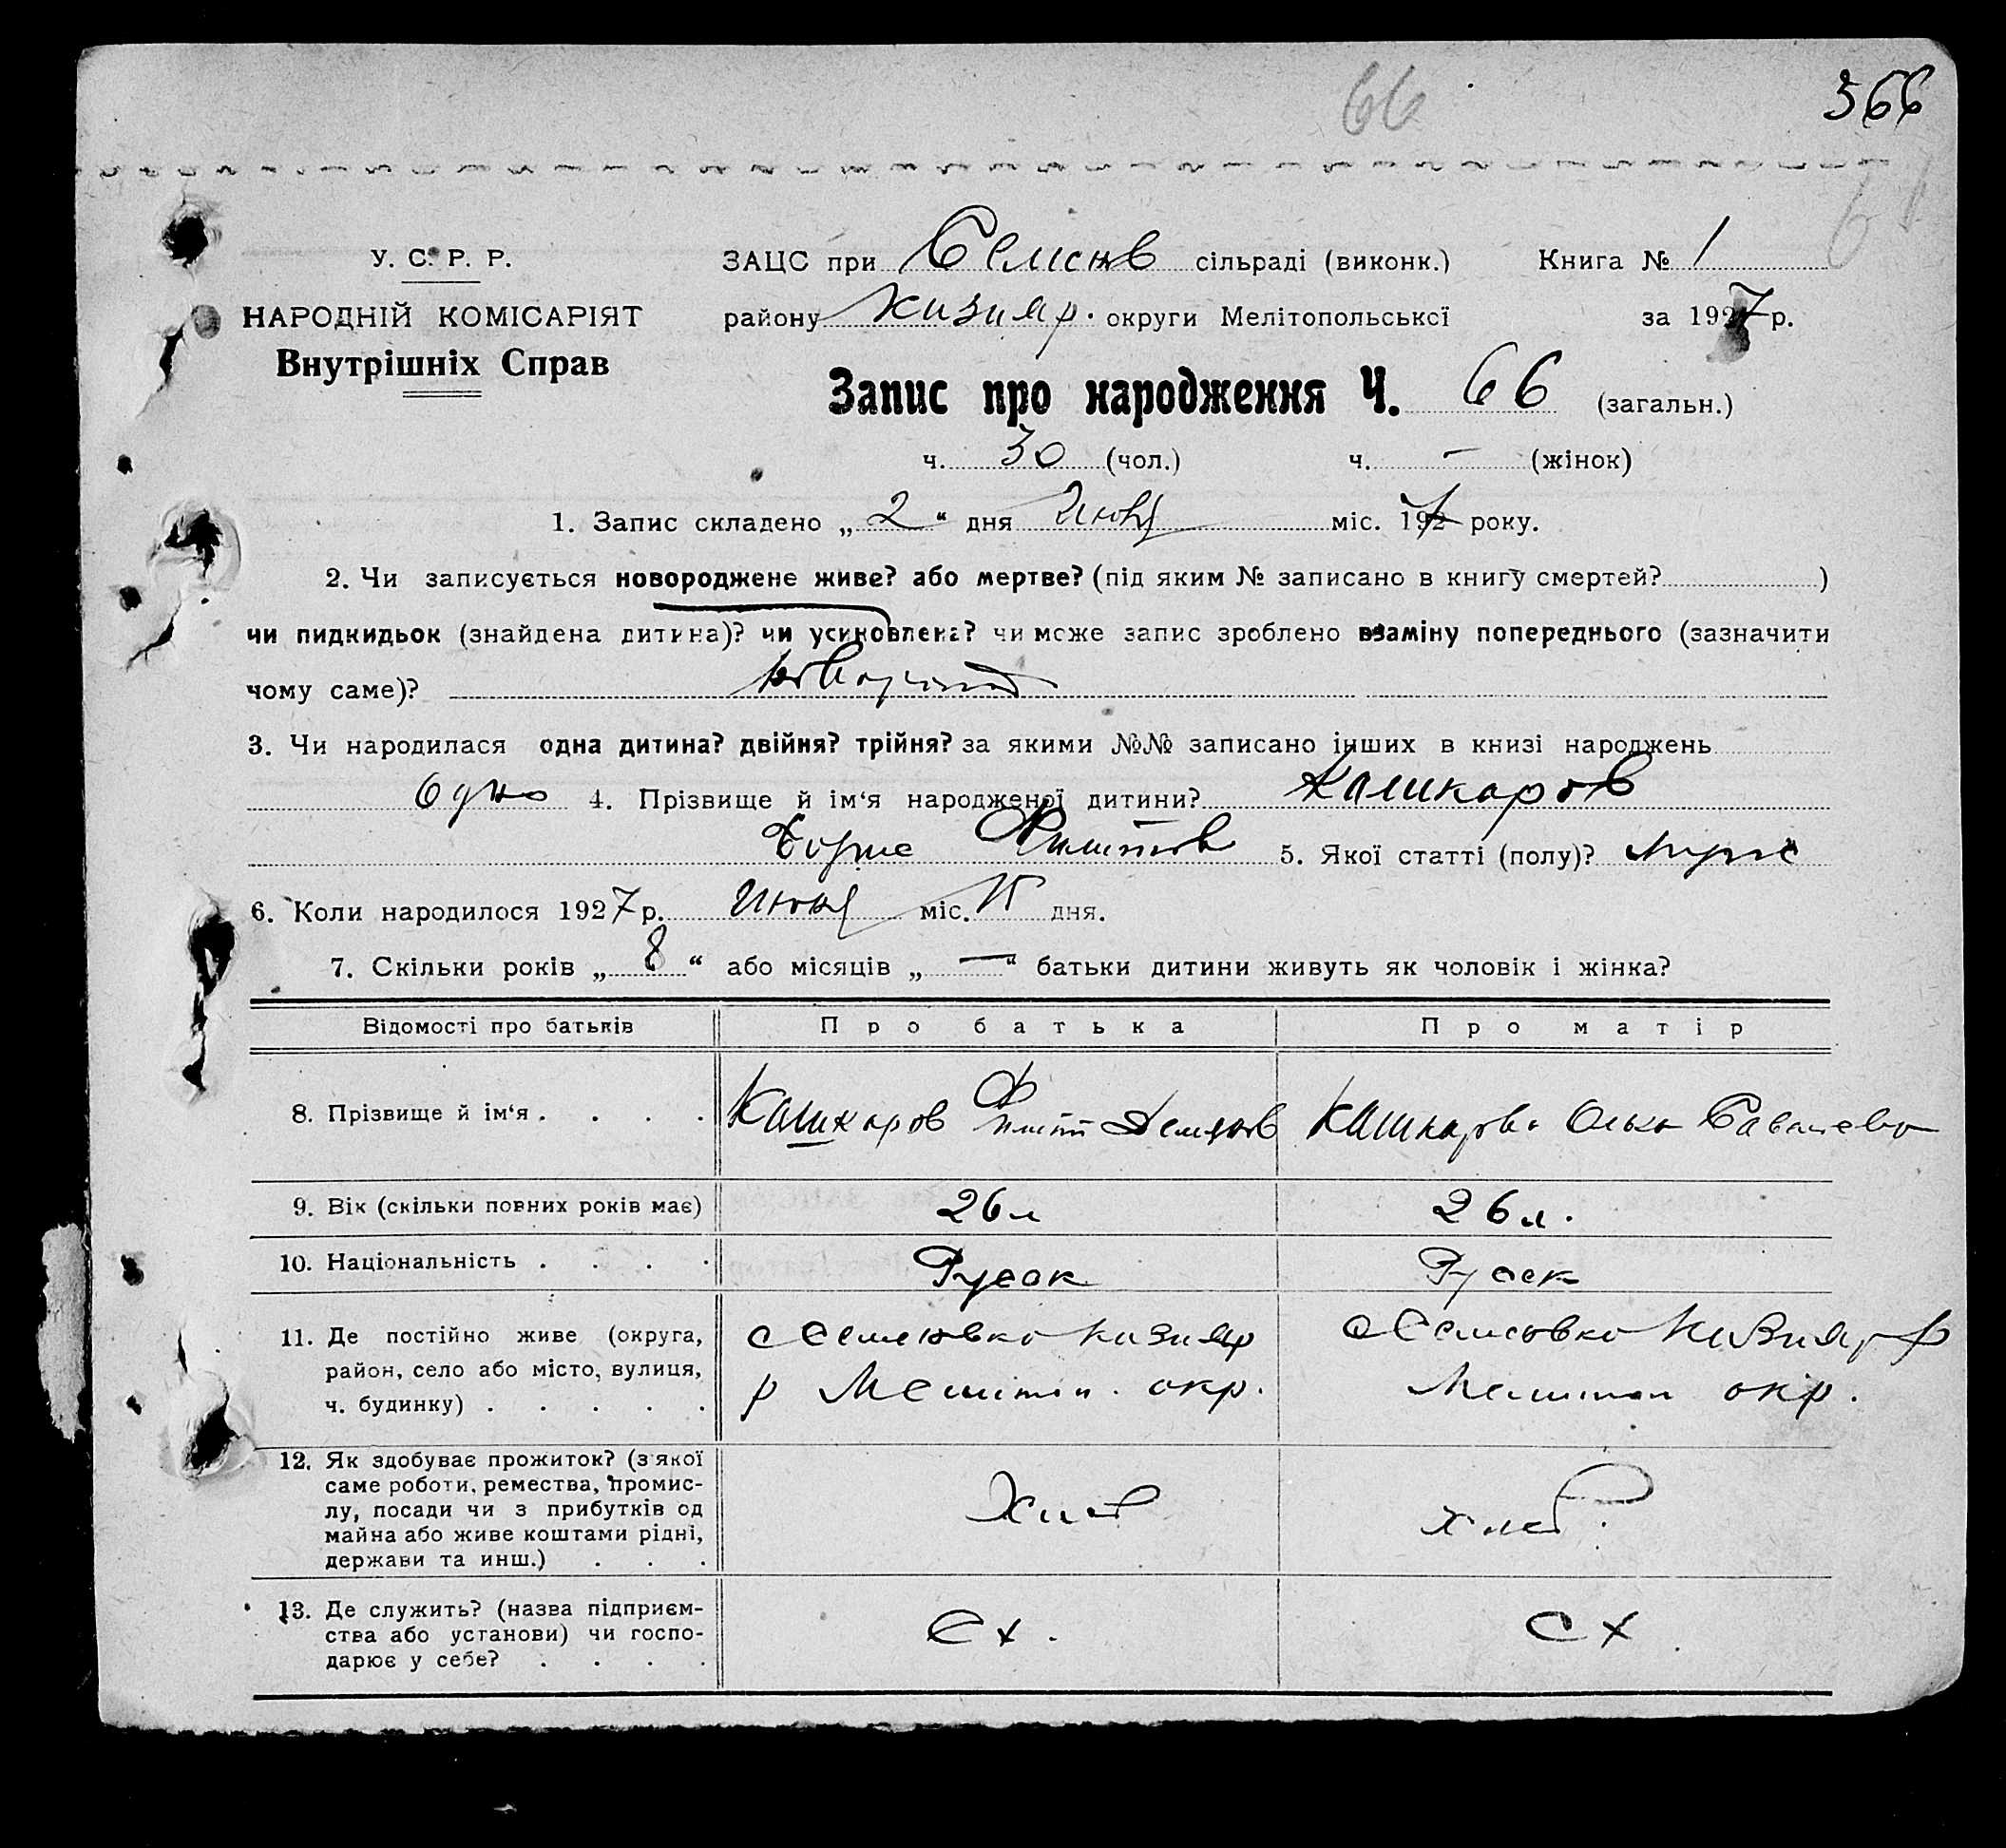 66
366
У. С. Р. Р.
НАРОДНІЙ КОМІСАРІЯТ
Внутрішніх Справ
ЗАЦС при Семенов сільраді (виконк.) Книга № 1
району Кизияр. округи Мелітопольської за 1927 р.
Запис про народження Ч. 66 (загальн.)
ч. 30 (чол.) ч. – (жінок)
1. Запис складено „ 2 “ дня міс. 1927 року.
2. Чи записується новороджене живе? або мертве? (під яким № записано в книгу смертей? )
чи пидкидьок (знайдена дитина)? чи усиновлена? чи може запис зроблено взаміну попереднього (зазначити
чому саме)?
3. Чи народилася одна дитина? двійня? трійня? за якими №№ записано інших в книзі народжень
одно 4. Прізвище й ім‘я народженої дитини? Кашкаров
Борис Филипов 5. Якої статті (полу)?
6. Коли народилося 1927 р. міс. дня.
7. Скільки років „ 8 “ або місяців „ — “ батьки дитини живуть як чоловік і жінка?
Відомості про батьків Про батька Про матір
8. Прізвище й ім‘я . . . . Кашкаров Филип Демидов Кашкарова Ольга Савельевна
9. Вік (скільки повних років має) 26 л 26 л.
10. Національність . . . . Русак Русск
11. Де постійно живе (округа, район, село або місто, вулиця, ч. будинку) . . . . .
с Семеновка Кизияр
р Мелитоп. окр.
с Семеновка Кизияр р
Мелитоп окр.
12. Як здобуває прожиток? (з якої
саме роботи, ремества, промис-
лу, посади чи з прибутків од
майна або живе коштами рідні,
держави та инш.) . . .
Хлеб
хлеб
13. Де служить? (назва підприєм-
ства або установи) чи госпо-
дарює у себе? . . . .
с х.
с х.